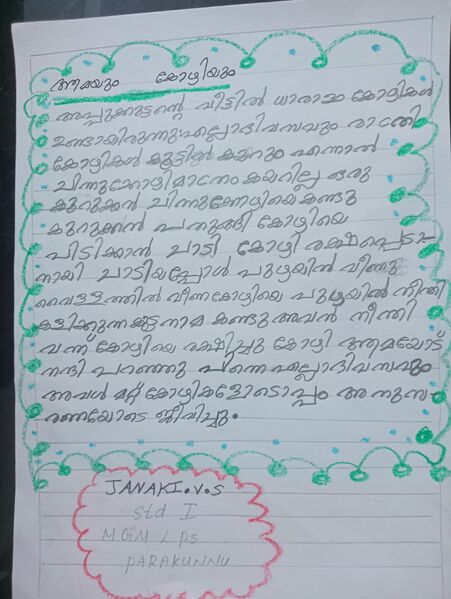 ആമയും കോഴിയും
അപ്പുക്കുട്ടന്റെ വീട്ടിൽ ധാരാളം കോഴികൾ
ഉണ്ടായിരുന്നു എല്ലാദിവസവും രാത്രി
കോഴികൾ കൂട്ടിൽ കയറും എന്നാൽ
ചിന്നുക്കോഴി മാത്രം കയറില്ല ഒരു
കുറുക്കൻ ചിന്നുക്കോഴിയെ കണ്ടു
കുറുക്കൻ പതുങ്ങി കോഴിയെ
പിടിക്കാൻ ചാടി കോഴി രക്ഷപ്പെടാ
നായി ചാടിയപ്പോൾ പുഴയിൽ വീണു
വെള്ളത്തിൽ വീണ കോഴിയെ പുഴയിൽ നീന്തി
കളിക്കുന്ന ആമ കണ്ടു അവൻ നീന്തി
വന്ന് കോഴിയെ രക്ഷിച്ചു കോഴി ആമയോട്
നന്ദി പറഞ്ഞു പിന്നെ എല്ലാദിവസവും
അവൾ മറ്റ് കോഴികളോടൊപ്പം അനുസ
രണയോടെ ജീവിച്ചു.
JANAKI.V.S
Std I
MGM LPS
PARAKUNNU